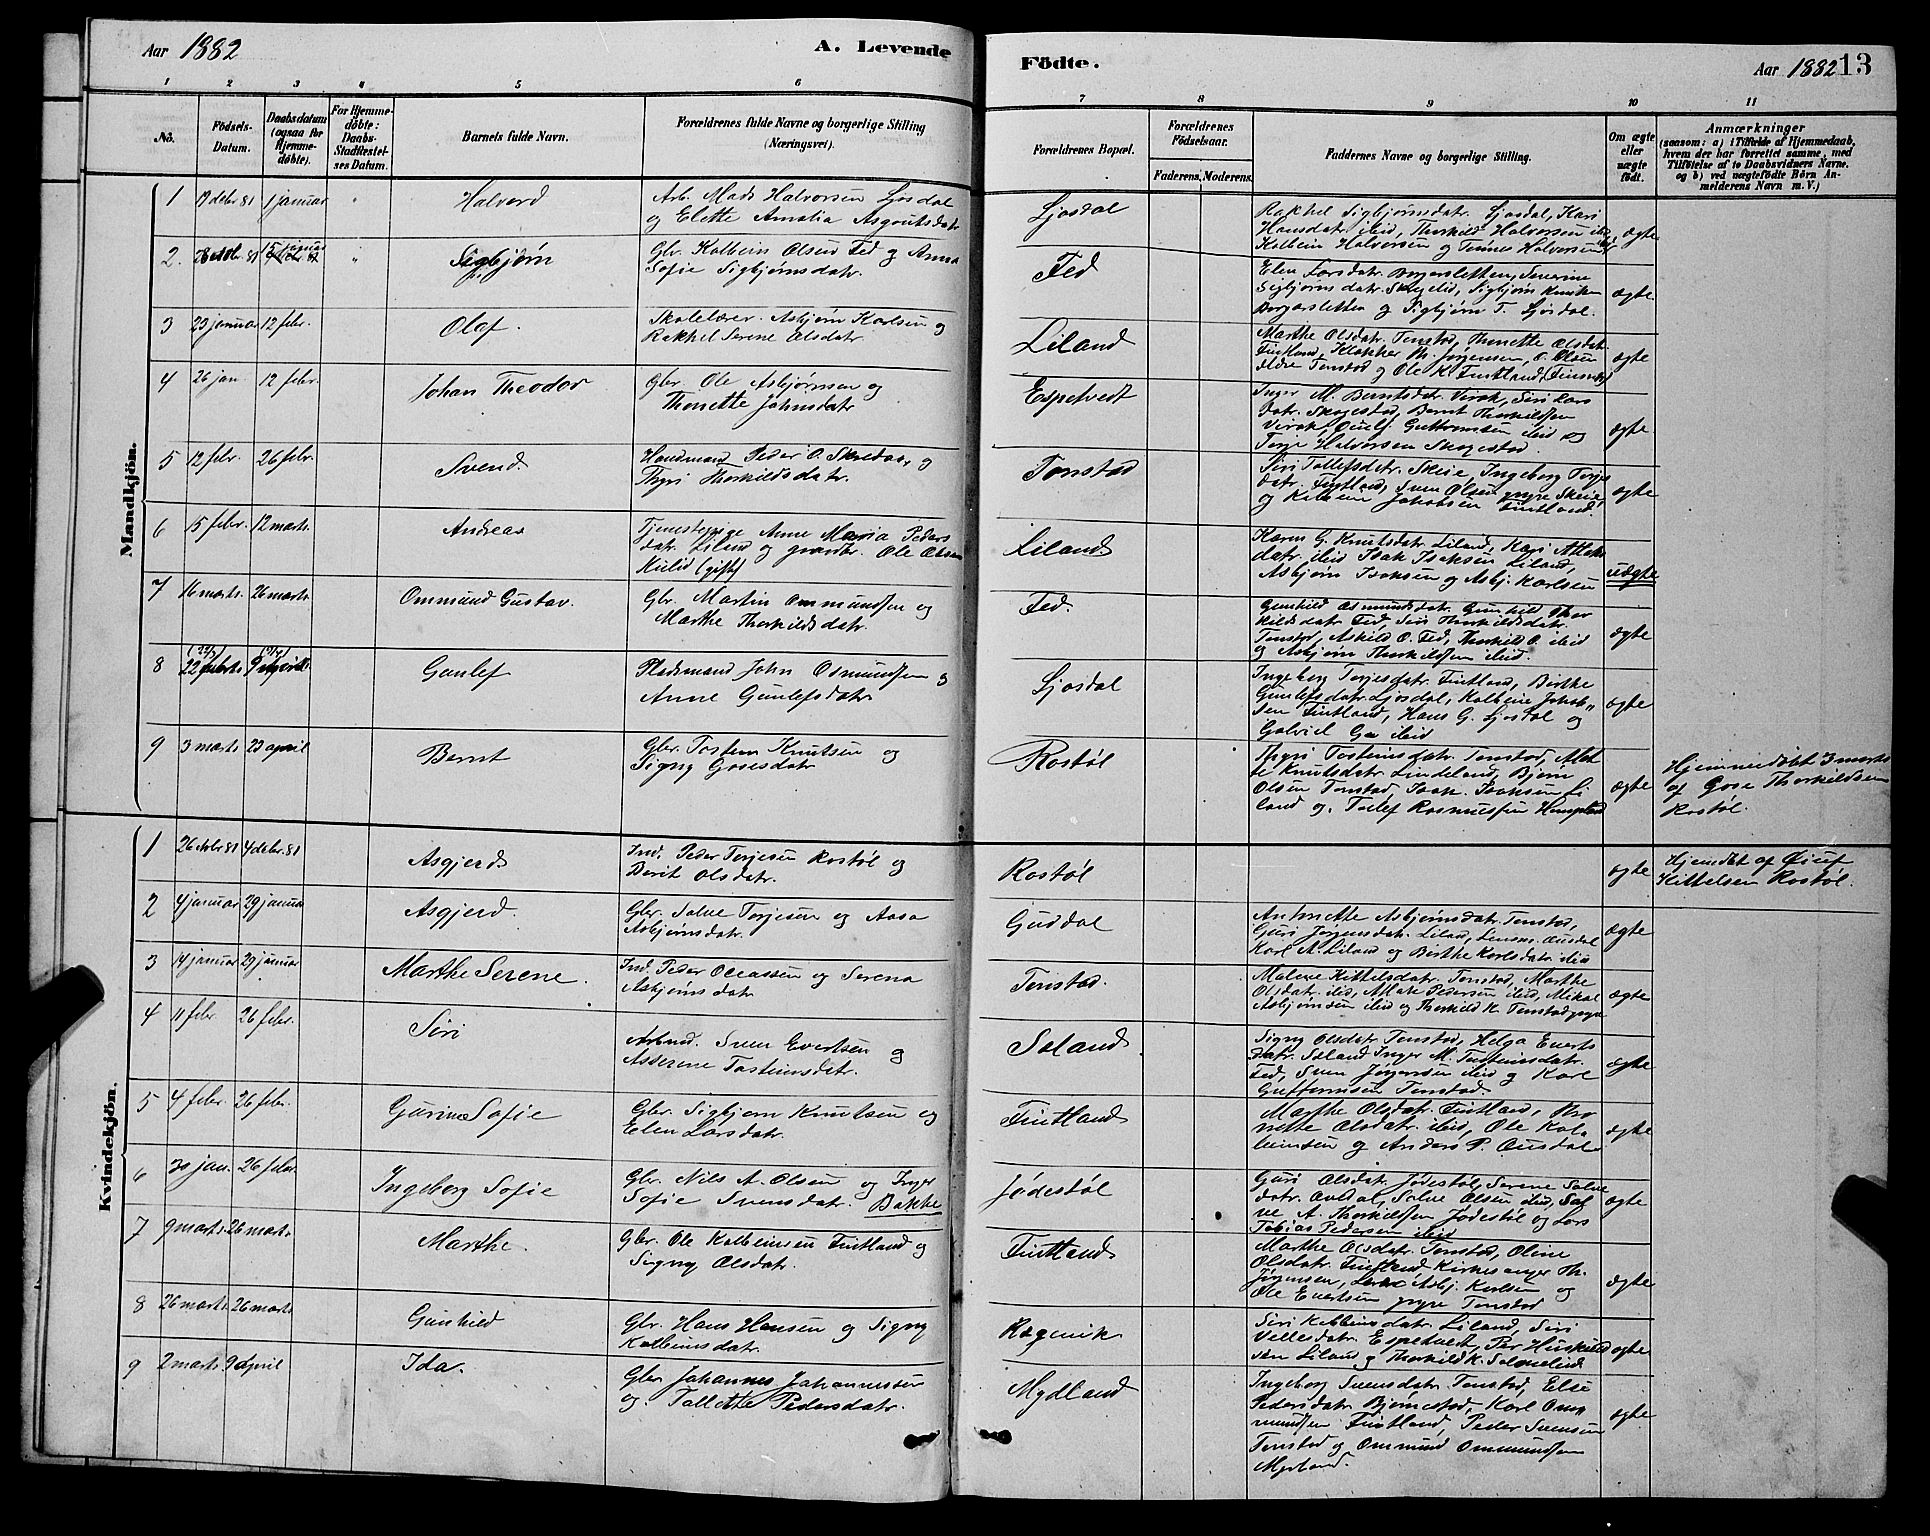 Aar 1882
A. Levende
Födte.
Aar 1882 13
1 2 3 4 5 6 7 8 9 10 11
No.
Födsels-
Datum.
Daabsdatum
(ogsaa for
Hjemme-
döbte).
For Hjemme-
döbte:
Daabs-
Stadfæstel-
ses Datum.
Barnets fulde Navn.
Forældrenes fulde Navne og borgerlige Stilling
(Næringsvei).
Forældrenes Bopæl.
Forældrenes
Födselsaar.
Faderens. Moderens.
Faddernes Navne og borgerlige Stilling.
Om ægte
eller
uægte
födt.
Anmærkninger
(saasom: a) i Tilfælde af Hjemmedaab,
hvem der har forrettet samme, med
Tilföielse af to Daabsvidners Navne.
og b) ved uægtefödte Börn An-
melderens Navn m. V.)
Mandkjön.
1 17 debr 81 1 januar Halvord
Arb. Mads Halvorsen Ljosdal
og Elette Amalia Asgoutsdatr
Ljosdal
Rakhel Sigbjørnsdatr. Ljosdal, Kari
Hansdatr. ibid, Thorkild Halvorsen ibid
Kolbein Halvorsen og Tønnes Halvorsen
ægte
2. 15 januar Sigbjørn
Gbr. Kolbein Olsen Fed og Anna
Sofie Sigbjørnsdatr.
Fed
Elen Larsdatr. Borgarsletten, Severine
Sigbjørnsdatr. Skeielid, Sigbjørn Knutsen
Borgarsletten og Sigbjørn T. Ljosdal.
ægte
3 23 januar 12 febr. Olaf.
Skolelærer. Asbjørn Karlsen og
Rakhel Serene Olsdatr
Liland
Marthe Olsdatr. Tonstad, Thonette Olsdat.
Fintland, Klokker Th. Jørgensen, O. Olsen
ældre Tonstad og Ole K. Fintland
ægte
4 26 jan 12 febr. Johan Theodor
Gbr. Ole Asbjørnsen og
Thonette Johnsdatr
Espetvedt
Inger M. Berntsdatr. Virak, Siri Lars
datr. Skogestad, Bernt Thorkildsen
Virak, Guttormsen ibid og
Terje Halvorsen Skogestad
ægte
5 12 febr. 26 febr. Svend.
Huusmand Peder O. Skredaa, og
Thyri Thorkildsdatr.
Tonstad
Siri Tollefsdatr. Skeie, Ingeborg Terjes
datr. Fintland, Sven Olsen yngre Skeie
og Jakobsen Fintland.
ægte
6 15 febr. 12 marts. Andreas
Tjenestepige Anne Maria Peders
datr. Liland og gaardbr. Ole Olsen
(gift)
Liland
Karen G. Knutsdatr. Liland, Kari Atlaks
datr. ibid Isak Isaksen Liland,
Asbjørn Isaksen og Asbj. Karlsen
uægte
7 16 marts. 26 marts. Ommund Gustav.
Gbr. Martin Ommundsen og
Marthe Thorkildsdatr.
Fed.
Gunhild Osmundsdatr. Gunhild Thor
kildsdatr Fed, Siri Thorkildsdatr.
Tonstad, Askild O. Fed, Thorkild O. ibid
og Asbjørn Thorkildsen ibid.
ægte
8 Gunlef
Pladsmand John Osmundsen og
Anne Gunlefsdatr
Ljosdal
Ingeborg Terjesdatr. Fintland, Birthe
Gunlefsdatr. Ljosdal, Kolbein Jakob-
sen Fintland, Hans G. Ljosdal og
Gabriel G. ibid
ægte
9 3 marts. 23 april Bernt
Gbr. Tosten Knutsen og
Signy Gosesdatr
Rostøl
Thyri Tosteinsdatr. Tonstad, Alet
te Knutsdatr. Lindeland, Bjørn
Olsen Tonstad, Isak Isaksen Li
land og Tollef Rasmussen
ægte
Hjemmedøbt 3 marts
af Gose Thorkildsen
Rostøl.
Kvindekjön.
1 26 nobr 81 4 debr. 81 Asgjerd
Ind. Peder Terjesen Rostøl og
Berit Olsdatr.
Rostøl
ægte
Hjemdbt af
Kittelsen Rostøl.
2 4 januar 29 januar Asgjerd.
Gbr. Salve Terjesen og Aasa
Asbjørnsdatr.
Guddal
Antonette Asbjørnsdatr. Tonstad,
Guri Jørgensdatr. Liland, Lensm. Ousdal
Karl A. Liland og Birthe Karlsdatr. ibid
ægte
3 14 januar 29 januar Marthe Serene.
Ind. Peder Oleassen og Serena
Asbjørnsdatr
Tonstad.
Malene Kittelsdatr. Tonstad, Marthe
Olsdatr. ibid, Atlak Pedersen ibid, Mikal
Asbjørnsen ibid og Thorkild K. Tonstad yngre
ægte
4 11 febr 26 febr. Siri
Arbmd. Sven Evertsen og
Asserene Tosteinsdatr.
Soland
Signy Olsdatr Tonstad, Helga Everts
datr. Soland Inger M. Tosteinsdatr.
Fed, Sven Jørgensen ibid og Karl
Guttormsen Tonstad.
ægte
5 4 febr. 26 febr. Gurine Sofie
Gbr. Sigbjørn Knutsen og
Elen Larsdatr.
Fintland
Marthe Olsdatr. Fintland, Tho
nette Olsdatr. ibid, Ole Kol-
beinsen og Anders P. Ousdal
ægte
6 30 jan. 26 febr. Ingeborg Sofie
Gbr. Nils A. Olsen og Inger
Sofie Svensdatr. Bakke
Jødestøl
Guri Olsdatr Jødestøl, Serene Salve
datr. Ovdal, Salve Olsen ibid, Sal
ve A. Thorkildsen Jødestøl og Lars
Tobias Pedersen ibid
ægte
7 9 marts. 26 marts. Marthe.
Gbr. Ole Kolbeinsen Fintland og
Signy Olsdatr.
Fintland
Marthe Olsdatr. Tonstad, Oline
Olsdatr. Fintland Kirkesanger Th.
Jørgensen, Lærer Asbj. Karlsen og
Ole Evertsen yngre Tonstad
ægte
8 26 marts. 26 marts. Gunhild
Gbr. Hans Hansen og Signy
Kolbeinsdatr.
Rægevik
Siri Kolbeinsdatr. Liland, Siri
Vellesdatr. Espetvedt, Per
sen Liland og Thorkild K. Salmelid
ægte
9 2 marts. 9 april Ida.
Gbr Johannes Johannessen
og Tallette Pedersdatr.
Mydland
Ingeborg Svensdatr Tonstad, Else
Pedersdatr. Bjørnestad, Karl Om
mundsen Fintland, Peder Svensen
Tonstad og Ommund Ommundsen
Mydland.
ægte